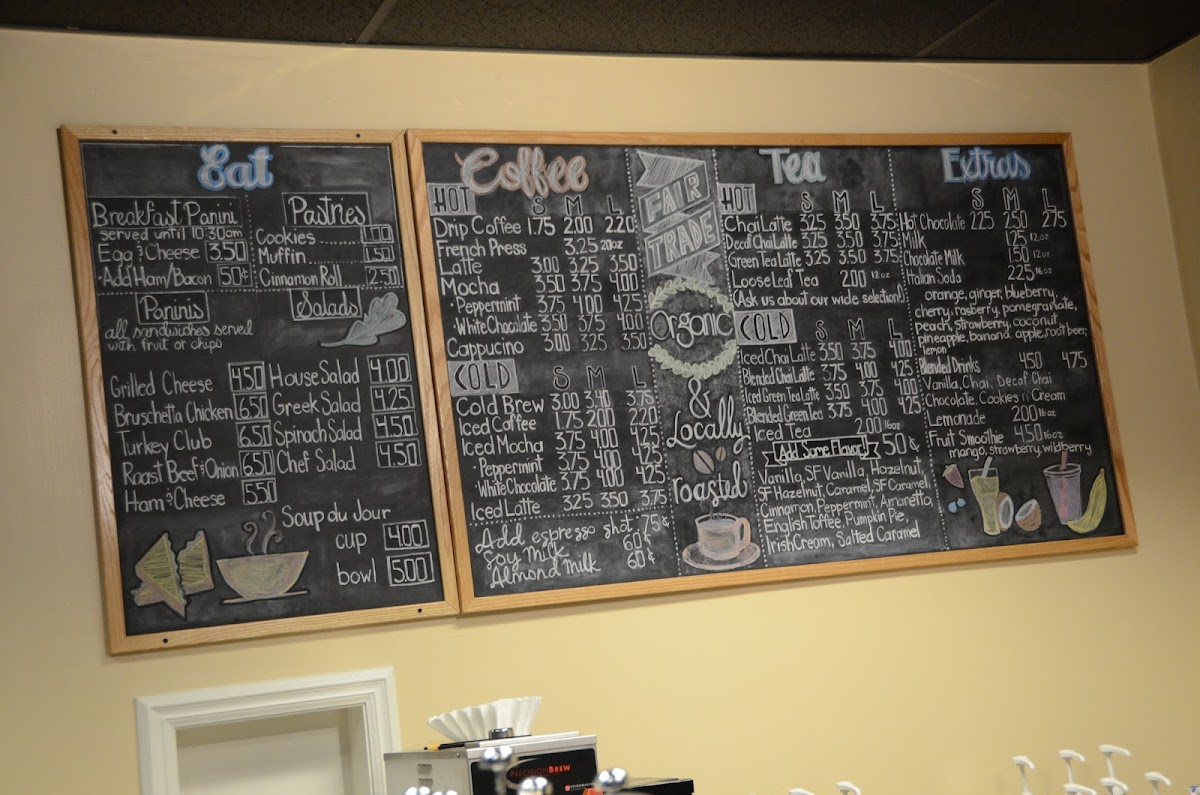 Eat
Breakfast Panini
served until 10:30am
Egg & Cheese 3.50
·Add Ham/Bacon 50¢
Pastries
Cookies 1.00
Muffin 1.50
Cinnamon Roll 2.50
Paninis
all sandwiches served
with fruit or chips
Grilled Cheese 4.50
Bruschetta Chicken 6.50
Turkey Club 6.50
Roast Beef & Onion 6.50
Ham & Cheese 5.50
Salads
House Salad 4.00
Greek Salad 4.25
Spinach Salad 4.50
Chef Salad 4.50
Soup du Jour
cup 4.00
bowl 5.00
Coffee
HOT S M L
Drip Coffee 1.75 2.00 2.20
French Press 3.25 20oz
Latte 3.00 3.25 3.50
Mocha 3.50 3.75 4.00
·Peppermint 3.75 4.00 4.25
·White Chocolate 3.50 3.75 4.00
Cappucino 3.00 3.25 3.50
COLD S M L
Cold Brew 3.00 3.40 3.75
Iced Coffee 1.75 2.00 2.20
Iced Mocha 3.75 4.00 4.25
·Peppermint 3.75 4.00 4.25
·White Chocolate 3.75 4.00 4.25
Iced Latte 3.25 3.50 3.75
Add espresso shot 75¢
Soy Milk 60¢
Almond Milk 60¢
FAIR
TRADE
Organic
&
Locally
roasted
Tea
HOT S M L
Chai Latte 3.25 3.50 3.75
Decaf Chai Latte 3.25 3.50 3.75
Green Tea Latte 3.25 3.50 3.75
Loose Leaf Tea 2.00 12oz
(Ask us about our wide selection!)
COLD S M L
Iced Chai Latte 3.50 3.75 4.00
Blended Chai Latte 3.75 4.00 4.25
Iced Green Tea Latte 3.50 3.75 4.00
Blended Green Tea 3.75 4.00 4.25
Iced Tea 2.00 16oz
Add Some Flavor! 50¢
Vanilla, SF Vanilla, Hazelnut,
SF Hazelnut, Caramel, SF Caramel,
Cinnamon, Peppermint, Amaretto,
English Toffee, Pumpkin Pie,
Irish Cream, Salted Caramel
Extras
S M L
Hot Chocolate 2.25 2.50 2.75
Milk 1.25 12oz
Chocolate Milk 1.50 12oz
Italian Soda 2.25 16oz
orange, ginger, blueberry,
cherry, rasberry, pomegranate,
peach, strawberry, coconut,
pineapple, banana, apple, root beer,
lemon
Blended Drinks 4.50 4.75
Vanilla, Chai, Decaf Chai
Chocolate, Cookies n' Cream
Lemonade 2.00 16oz
Fruit Smoothie 4.50 16oz
mango, strawberry, wildberry
PRECISIONBREW